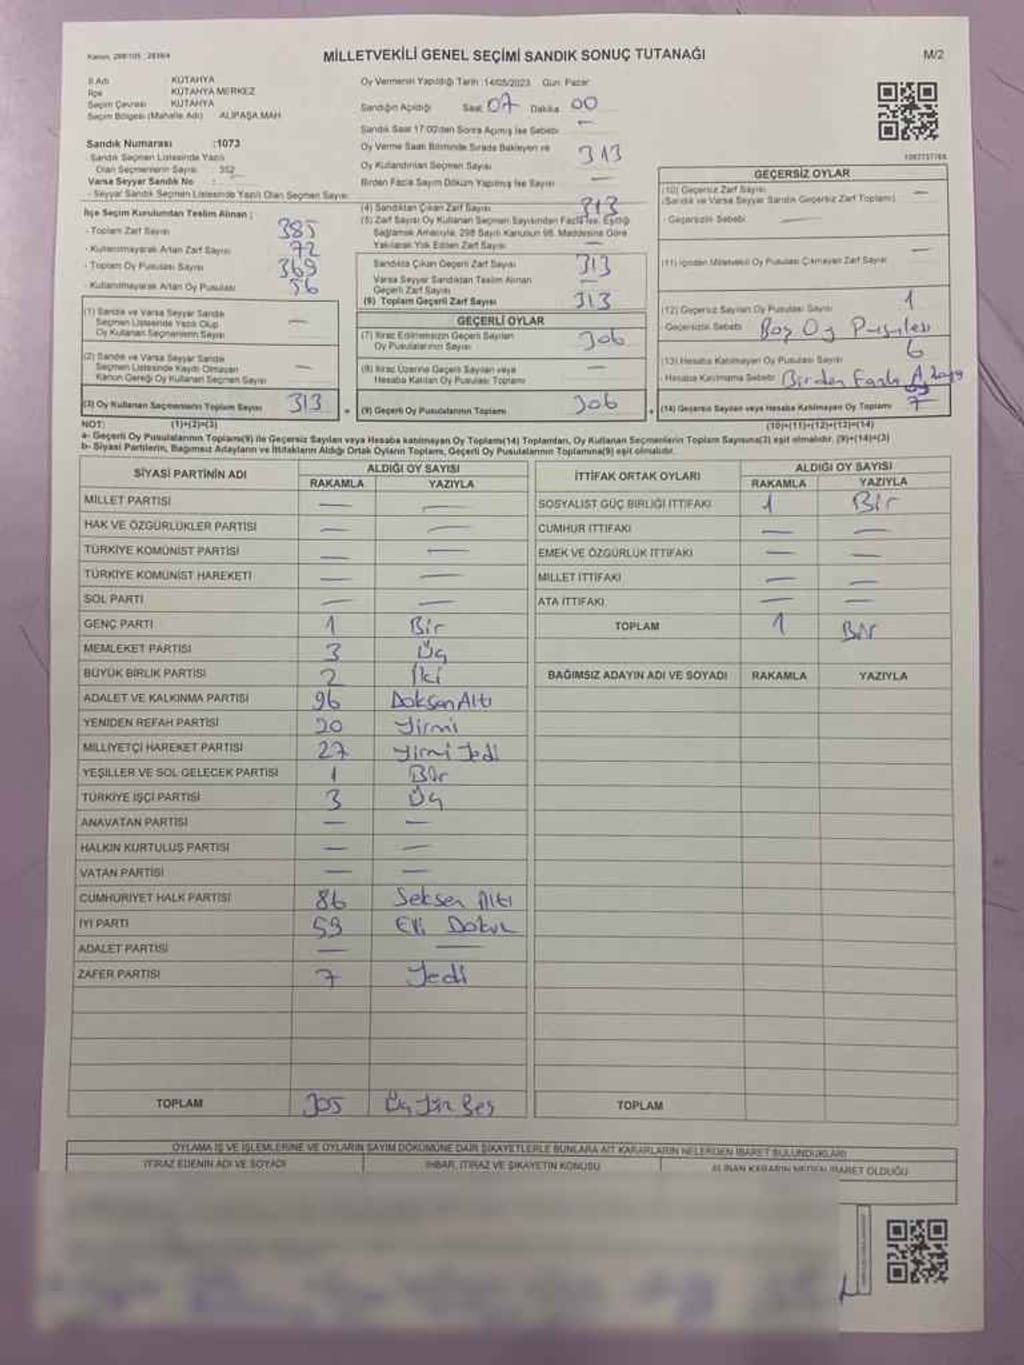 Kanun: 298/105 ; 2839/4
MİLLETVEKİLİ GENEL SEÇİMİ SANDIK SONUÇ TUTANAĞI
M/2
İl Adı KÜTAHYA
İlçe KÜTAHYA MERKEZ
Seçim Çevresi KÜTAHYA
Seçim Bölgesi (Mahalle Adı) ALİPAŞA MAH
Sandık Numarası :1073
- Sandık Seçmen Listesinde Yazılı
Olan Seçmenlerin Sayısı : 352
Varsa Seyyar Sandık No :
- Seyyar Sandık Seçmen Listesinde Yazılı Olan Seçmen Sayısı:
İlçe Seçim Kurulundan Teslim Alınan ;
- Toplam Zarf Sayısı 385
- Kullanılmayarak Artan Zarf Sayısı 72
- Toplam Oy Pusulası Sayısı 369
- Kullanılmayarak Artan Oy Pusulası 56
(1) Sandık ve Varsa Seyyar Sandık
Seçmen Listesinde Yazılı Olup
Oy Kullanan Seçmenlerin Sayısı —
(2) Sandık ve Varsa Seyyar Sandık
Seçmen Listesinde Kaydı Olmayan
Kanun Gereği Oy Kullanan Seçmen Sayısı —
(3) Oy Kullanan Seçmenlerin Toplam Sayısı 313
Oy Vermenin Yapıldığı Tarih :14/05/2023 Gün: Pazar
Sandığın Açıldığı Saat 07 Dakika 00
Sandık Saat 17:00'den Sonra Açılmış İse Sebebi —
Oy Verme Saati Bitiminde Sırada Bekleyen ve
Oy Kullandırılan Seçmen Sayısı 313
Birden Fazla Sayım Döküm Yapılmış İse Sayısı —
(4) Sandıktan Çıkan Zarf Sayısı 313
(5) Zarf Sayısı Oy Kullanan Seçmen Sayısından Fazla ise, Eşitliği
Sağlamak Amacıyla, 298 Sayılı Kanunun 98. Maddesine Göre
Yakılarak Yok Edilen Zarf Sayısı —
Sandıkta Çıkan Geçerli Zarf Sayısı 313
Varsa Seyyar Sandıktan Teslim Alınan
Geçerli Zarf Sayısı —
(6) Toplam Geçerli Zarf Sayısı 313
GEÇERLİ OYLAR
(7) İtiraz Edilmeksizin Geçerli Sayılan
Oy Pusulalarının Sayısı 306
(8) İtiraz Üzerine Geçerli Sayılan veya
Hesaba Katılan Oy Pusulası Toplamı —
= (9) Geçerli Oy Pusulalarının Toplamı 306
GEÇERSİZ OYLAR
(10) Geçersiz Zarf Sayısı
(Sandık ve Varsa Seyyar Sandık Geçersiz Zarf Toplamı) —
- Geçersizlik Sebebi : —
(11) İçinden Milletvekili Oy Pusulası Çıkmayan Zarf Sayısı —
(12) Geçersiz Sayılan Oy Pusulası Sayısı 1
- Geçersizlik Sebebi : Boş Oy Pusulası
(13) Hesaba Katılmayan Oy Pusulası Sayısı 6
- Hesaba Katılmama Sebebi: Birden Fazla Adaya
+ (14) Geçersiz Sayılan veya Hesaba Katılmayan Oy Toplamı 7
NOT: (1)+(2)=(3) (10)+(11)+(12)+(13)=(14)
a- Geçerli Oy Pusulalarının Toplamı(9) ile Geçersiz Sayılan veya Hesaba katılmayan Oy Toplamı(14) Toplamları, Oy Kullanan Seçmenlerin Toplam Sayısına(3) eşit olmalıdır. (9)+(14)=(3)
b- Siyasi Partilerin, Bağımsız Adayların ve İttifakların Aldığı Oyların Toplamı, Geçerli Oy Pusulalarının Toplamına(9) eşit olmalıdır.
SİYASİ PARTİNİN ADI
ALDIĞI OY SAYISI
RAKAMLA YAZIYLA
MİLLET PARTİSİ — —
HAK VE ÖZGÜRLÜKLER PARTİSİ — —
TÜRKİYE KOMÜNİST PARTİSİ — —
TÜRKİYE KOMÜNİST HAREKETİ — —
SOL PARTİ — —
GENÇ PARTİ 1 Bir
MEMLEKET PARTİSİ 3 Üç
BÜYÜK BİRLİK PARTİSİ 2 İki
ADALET VE KALKINMA PARTİSİ 96 Doksan Altı
YENİDEN REFAH PARTİSİ 20 Yirmi
MİLLİYETÇİ HAREKET PARTİSİ 27 Yirmi Yedi
YEŞİLLER VE SOL GELECEK PARTİSİ 1 Bir
TÜRKİYE İŞÇİ PARTİSİ 3 Üç
ANAVATAN PARTİSİ — —
HALKIN KURTULUŞ PARTİSİ — —
VATAN PARTİSİ — —
CUMHURİYET HALK PARTİSİ 86 Seksen Altı
İYİ PARTİ 59 Elli Dokuz
ADALET PARTİSİ — —
ZAFER PARTİSİ 7 Yedi
TOPLAM 305 Üç Yüz Beş
İTTİFAK ORTAK OYLARI
ALDIĞI OY SAYISI
RAKAMLA YAZIYLA
SOSYALİST GÜÇ BİRLİĞİ İTTİFAKI 1 Bir
CUMHUR İTTİFAKI — —
EMEK VE ÖZGÜRLÜK İTTİFAKI — —
MİLLET İTTİFAKI — —
ATA İTTİFAKI — —
TOPLAM 1 Bir
BAĞIMSIZ ADAYIN ADI VE SOYADI RAKAMLA YAZIYLA
TOPLAM
OYLAMA İŞ VE İŞLEMLERİNE VE OYLARIN SAYIM DÖKÜMÜNE DAİR ŞİKAYETLERLE BUNLARA AİT KARARLARIN NELERDEN İBARET BULUNDUKLARI
İTİRAZ EDENİN ADI VE SOYADI İHBAR, İTİRAZ VE ŞİKAYETİN KONUSU ALINAN KARARIN NEDEN İBARET OLDUĞU